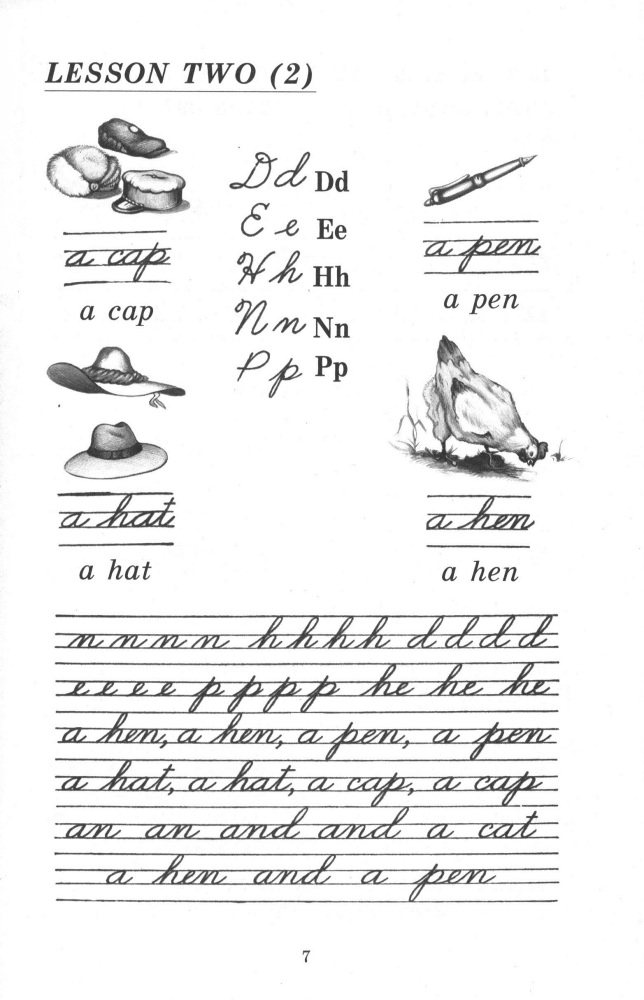 LESSON TWO (2)
Dd Dd
Ee Ee
Hh Hh
Nn Nn
Pp Pp
a cap
a cap
a pen
a pen
a hat
a hat
a hen
a hen
n n n n n h h h h d d d d
e e e e p p p p he he he
a hen, a hen, a pen, a pen
a hat, a hat, a cap, a cap
an an and and a cat
a hen and a pen
7